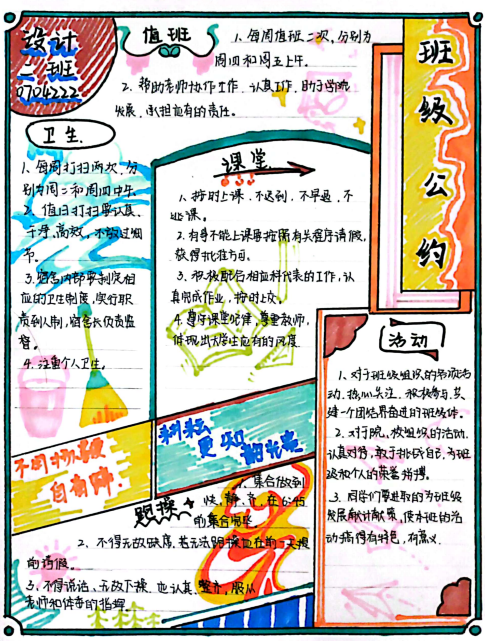 设计
一班
0704222
值班
1、每周值班二次，分别为
周四和周五上午。
2、帮助老师协作工作，认真工作，助于学院
发展，承担应有的责任。
班级公约
卫生
1、每周打扫两次，分
别为周二和周四中午
2、值日打扫要认真、
干净、高效，不放过细
节。
3、宿舍内部要制定相
应的卫生制度，实行职
责到人制，宿舍长负责监
督。
4、注重个人卫生。
课堂
1、按时上课，不迟到，不早退，不
旷课。
2、有事不能上课要按照有关程序请假，
获得批准方可。
3、积极配合相应科代表的工作，认
真完成作业，按时上交。
4、遵守课堂纪律，尊重教师，
体现出大学生应有的风度
活动
1、对于班级组织的各项活
动，热心关注，积极参与，共
建一个团结奋进的班级体。
2、对院、校组织的活动，
认真对待，敢于挑战自己，为班
级和个人的荣誉拼搏。
3、同学们要进取的为班级
发展献计献策，使本班的活
动搞得有特色，有意义
自有
更知
跑操
1、集合做到
快，静，齐，在6:45
前集合完毕
2、不得无故缺席，若无法跑操应在前一天找
3、不得说话、无故下操，也认真，整齐，服从
老师和体委的指挥